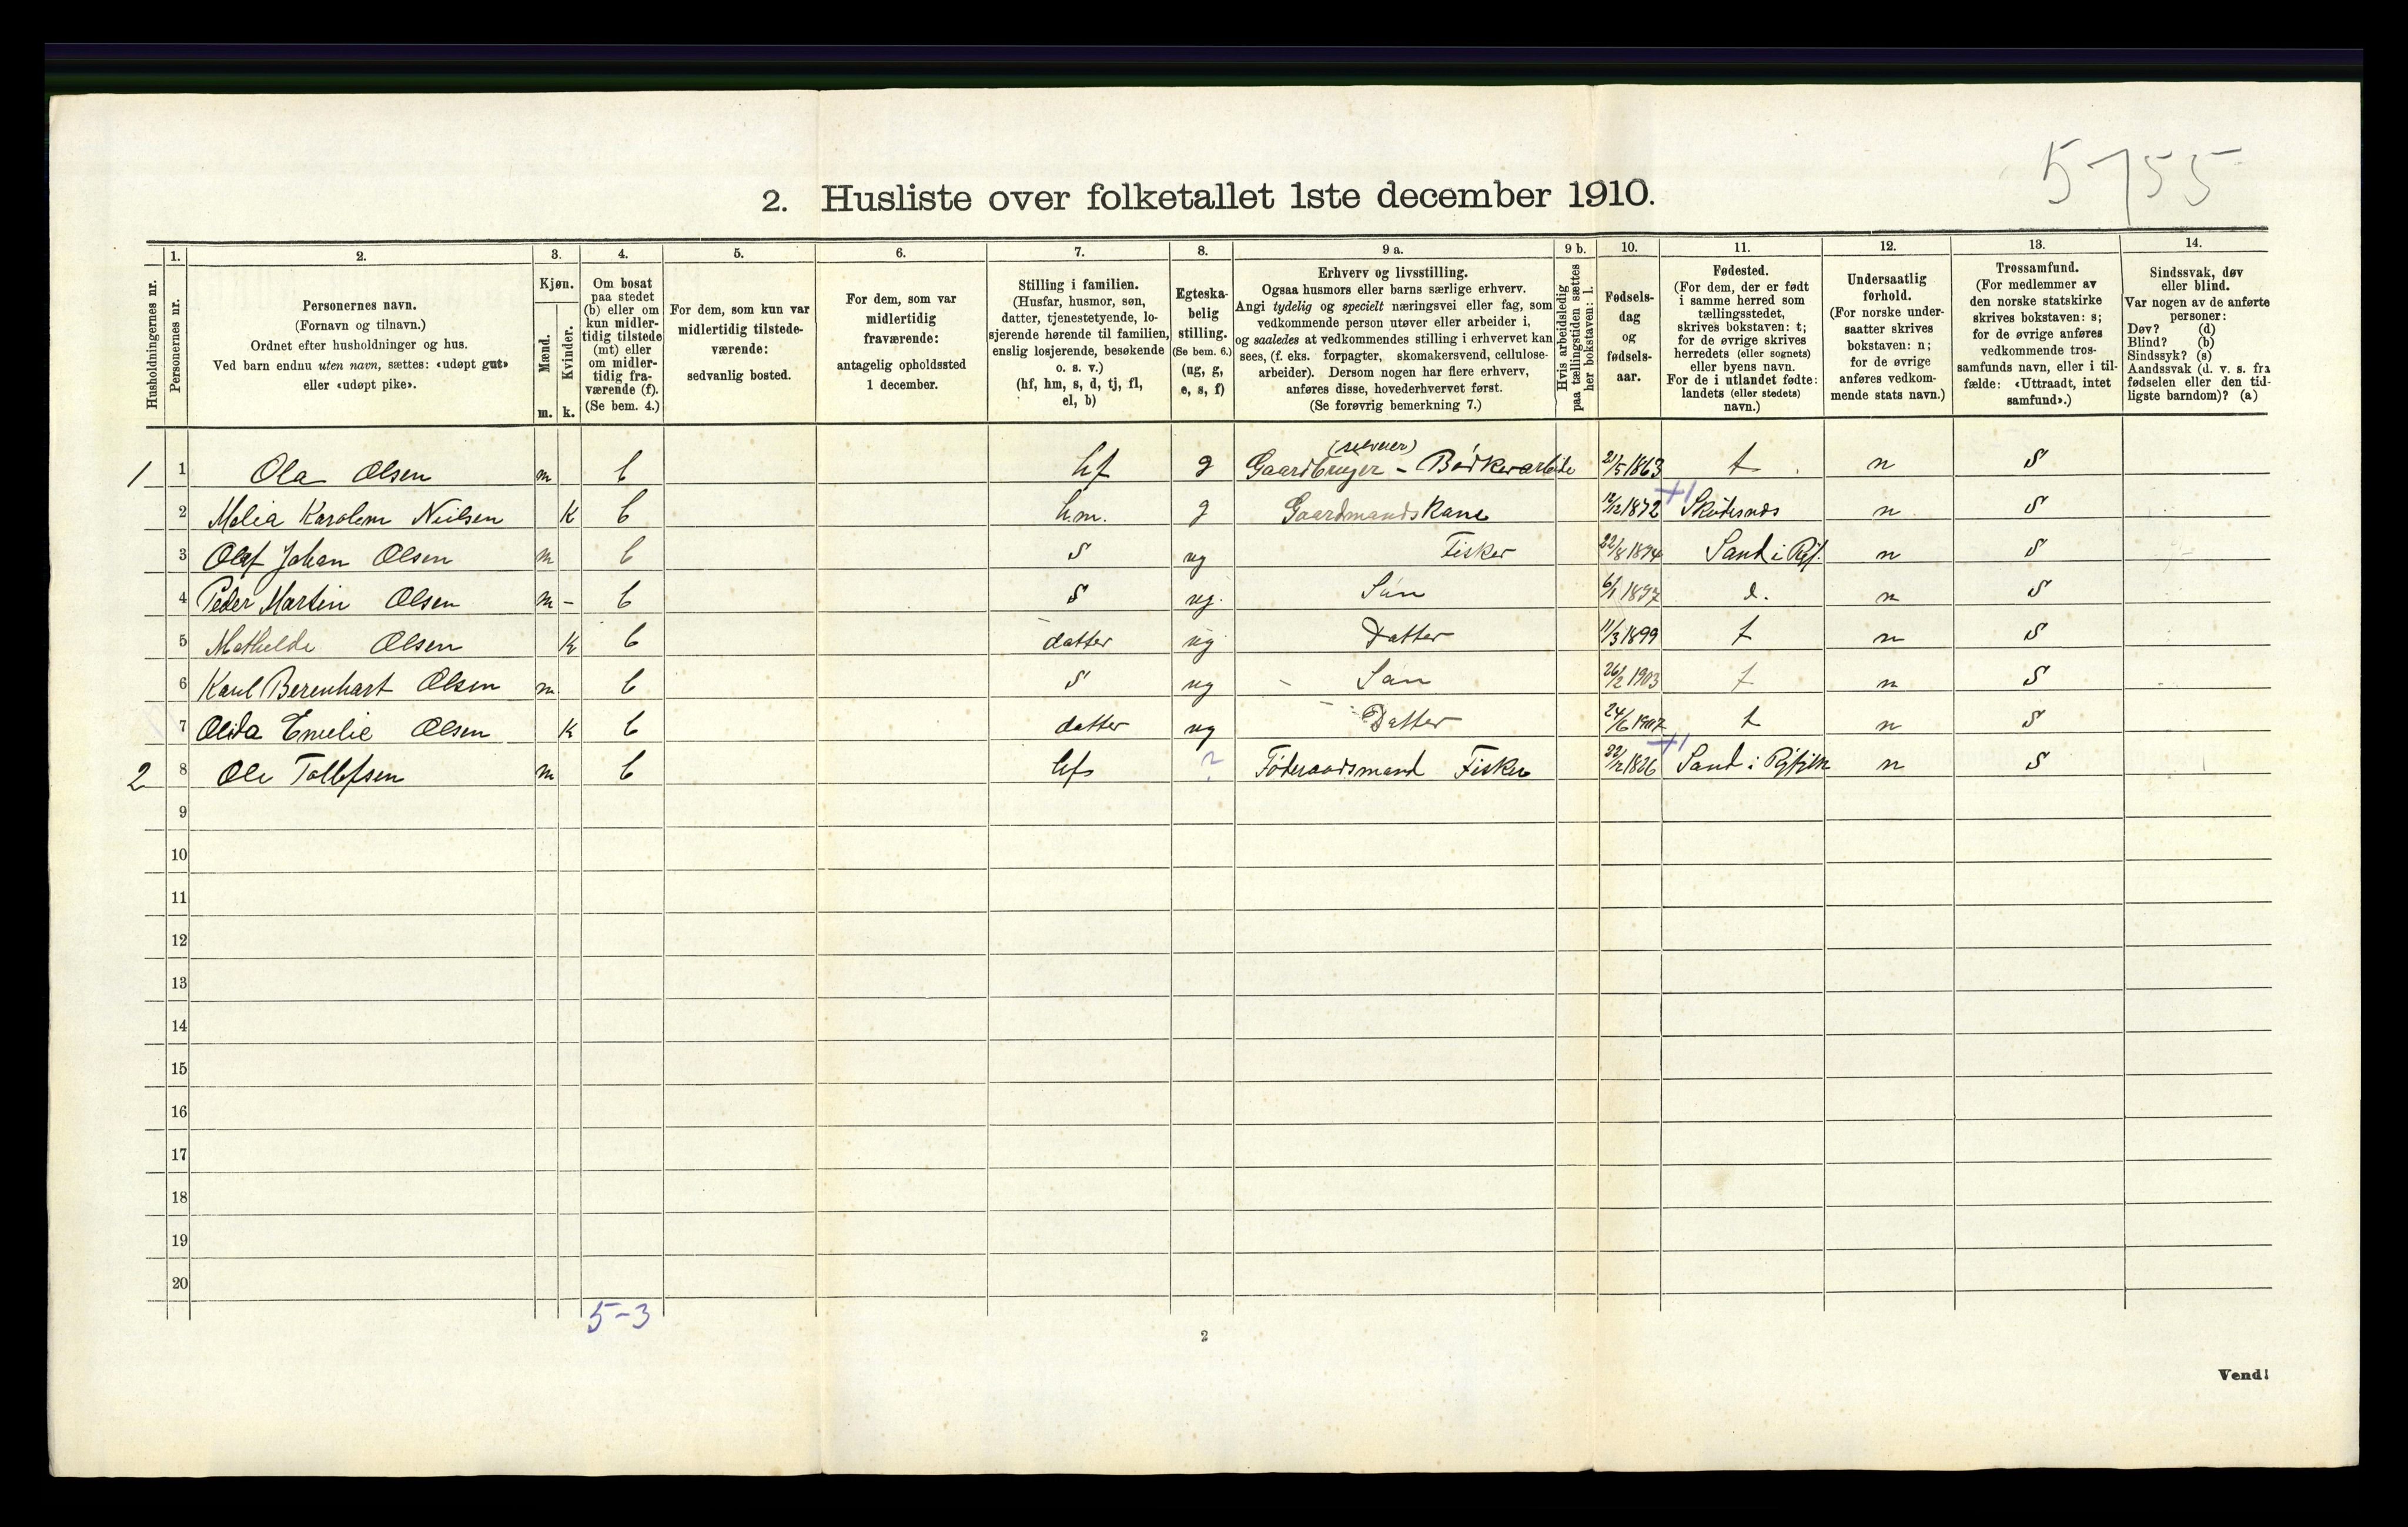 5755
2. Husliste over folketallet 1ste december 1910.
1. 2. 3. 4. 5. 6. 7. 8. 9 a. 9 b. 10. 11. 12. 13. 14.
Husholdningernes nr.
Personernes nr.
Personernes navn.
(Fornavn og tilnavn.)
Ordnet efter husholdninger og hus.
Ved barn endnu uten navn, sættes: «udøpt gut»
eller «udøpt pike».
Kjøn.
Mænd.
Kvinder.
m. k.
Om bosat
paa stedet
(b) eller om
kun midler-
tidig tilstede
(mt) eller
om midler-
tidig fra-
værende (f).
(Se bem. 4.)
For dem, som kun var
midlertidig tilstede-
værende:
sedvanlig bosted.
For dem, som var
midlertidig
fraværende:
antagelig opholdssted
1 december.
Stilling i familien.
(Husfar, husmor, søn,
datter, tjenestetyende, lo-
sjerende hørende til familien,
enslig losjerende, besøkende
o. s. v.)
(hf, hm, s, d, tj, fl,
el, b)
Egteska-
belig
stilling.
(Se bem. 6.)
(ug, g,
e, s, f)
Erhverv og livsstilling.
Ogsaa husmors eller barns særlige erhverv.
Angi tydelig og specielt næringsvei eller fag, som
vedkommende person utøver eller arbeider i,
og saaledes at vedkommendes stilling i erhvervet kan
sees, (f. eks. forpagter, skomakersvend, cellulose-
arbeider). Dersom nogen har flere erhverv,
anføres disse, hovederhvervet først.
(Se forøvrig bemerkning 7.)
Hvis arbeidsledig
paa tællingstiden sættes
her bokstaven: l.
Fødsels-
dag
og
fødsels-
aar.
Fødested.
(For dem, der er født
i samme herred som
tællingsstedet,
skrives bokstaven: t;
for de øvrige skrives
herredets (eller sognets)
eller byens navn.
For de i utlandet fødte:
landets (eller stedets)
navn.)
Undersaatlig
forhold.
(For norske under-
saatter skrives
bokstaven: n;
for de øvrige
anføres vedkom-
mende stats navn.)
Trossamfund.
(For medlemmer av
den norske statskirke
skrives bokstaven: s;
for de øvrige anføres
vedkommende tros-
samfunds navn, eller i til-
fælde: «Uttraadt, intet
samfund».)
Sindssvak, døv
eller blind.
Var nogen av de anførte
personer:
Døv? (d)
Blind? (b)
Sindssyk? (s)
Aandssvak (d. v. s. fra
fødselen eller den tid-
ligste barndom)? (a)
(selveier)
1 1 Ola Olsen m b hf g Gaardbruger - Bødkerarbeide 21/5 1863 t n S
2 Karolem Nielsen K b hm. g Gaardmandskane 12/12 1872 +1 n S
3 Olaf Johan Olsen m b S ug Fisker 22/8 1894 Sand i Ryf. n S
4 Peder Martin Olsen m - b S ug. Søn 6/1 1897 d. n S
5 Mathelde Olsen K b datter ug Datter 11/3 1899 t n S
6 Karl Berenhart Olsen m b S ug - Søn 26/2 1903 t n S
7 Olida Emelie Olsen K b datter ug Datter 24/6 1907 t n S
2 8 Ole Tollefsen m b hf ? Føderaadsmand Fisker 1826 +1 Sand i Ryfylke n S
9
10
11
12
13
14
15
16
17
18
19
20
5-3
2
Vend!